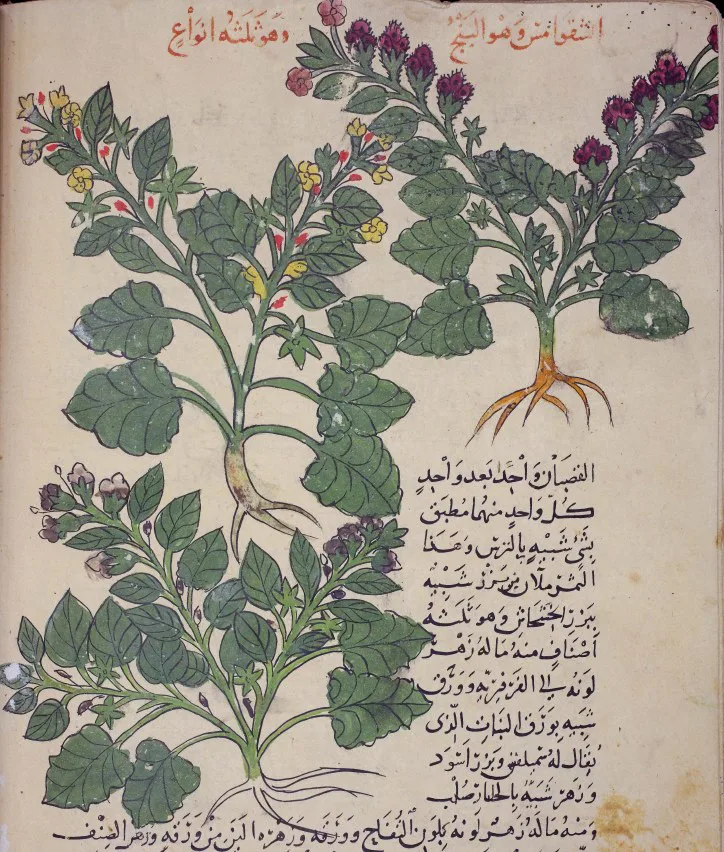 اشقوامس وهو البنج
وهو ثلثه انواع
القضبان واحدا بعد واحد
كل واحد منهما مطبق
بشئ شبيه بالترس وهذا
الثمر ملآن من بزر شبيه
ببزر الخشخاش وهو ثلثه
اصناف منه ما له زهر
لونه الى الفرفريه وورق
شبيه بورق النبات الذى
يقال له سميلقس وبزر اسود
وزهر شبيه بالجلنار صلب
ومنه ما له زهر لونه كلون التفاح وورقه وزهره الين من ورقه وزهر الصنف